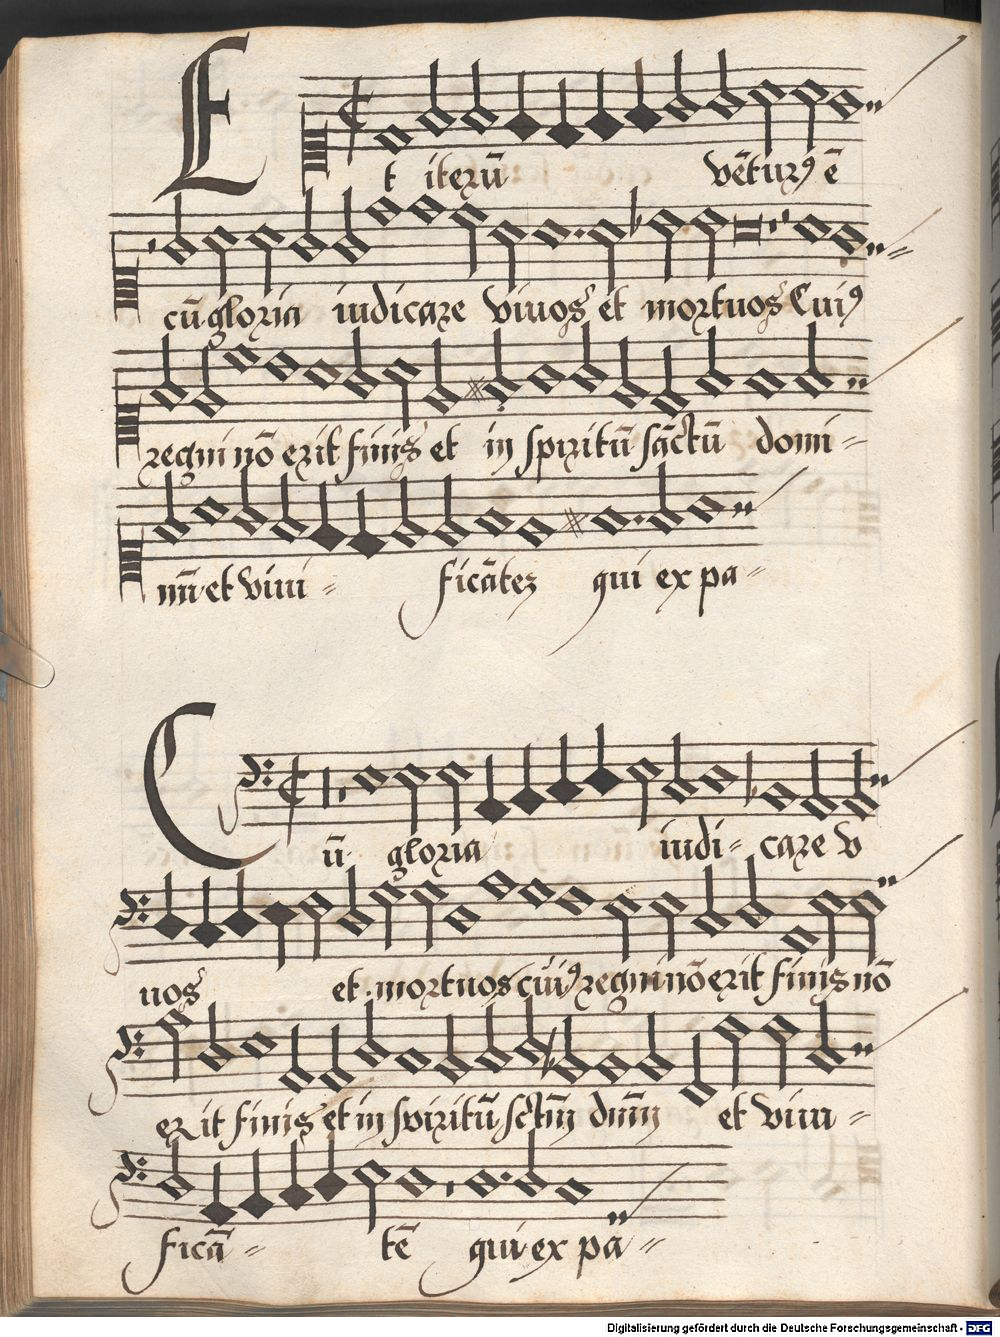 Et iterū vētur⁹ ē
cū gloria iudicare viuos et mortuos Cui⁹
regni nō erit finis et in spiritū sāctū domi-
nū et viui- ficātez qui ex pa-
Cū gloria iudi- care v
uos et mortuos cui⁹ regni nō erit finis nō
erit finis et in spiritū sctm̄ dnm̄ et viui-
ficā- tē qui ex pa-
Digitalisierung gefördert durch die Deutsche Forschungsgemeinschaft - DFG